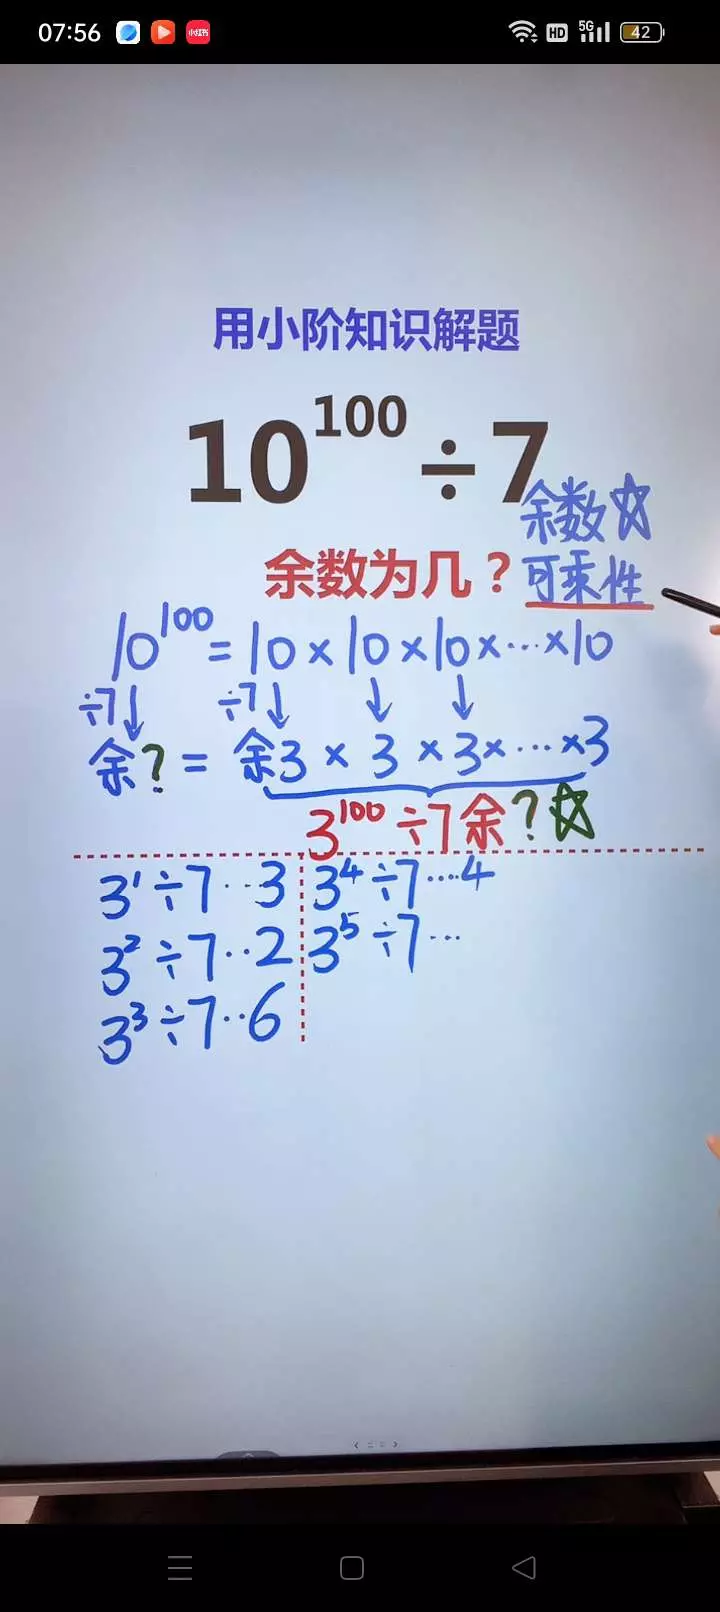 07:56 小红书 HD 5G 42
用小阶知识解题
10^100 ÷ 7
余数☆
余数为几？可乘性
10^100 = 10 × 10 × 10 × … × 10
÷7↓ ÷7↓ ↓ ↓
余? = 余3 × 3 × 3 × … × 3
3^100 ÷7余?☆
3^1 ÷ 7 … 3
3^2 ÷ 7 ‥ 2
3^3 ÷ 7 ‥ 6
3^4 ÷ 7 …. 4
3^5 ÷ 7 …